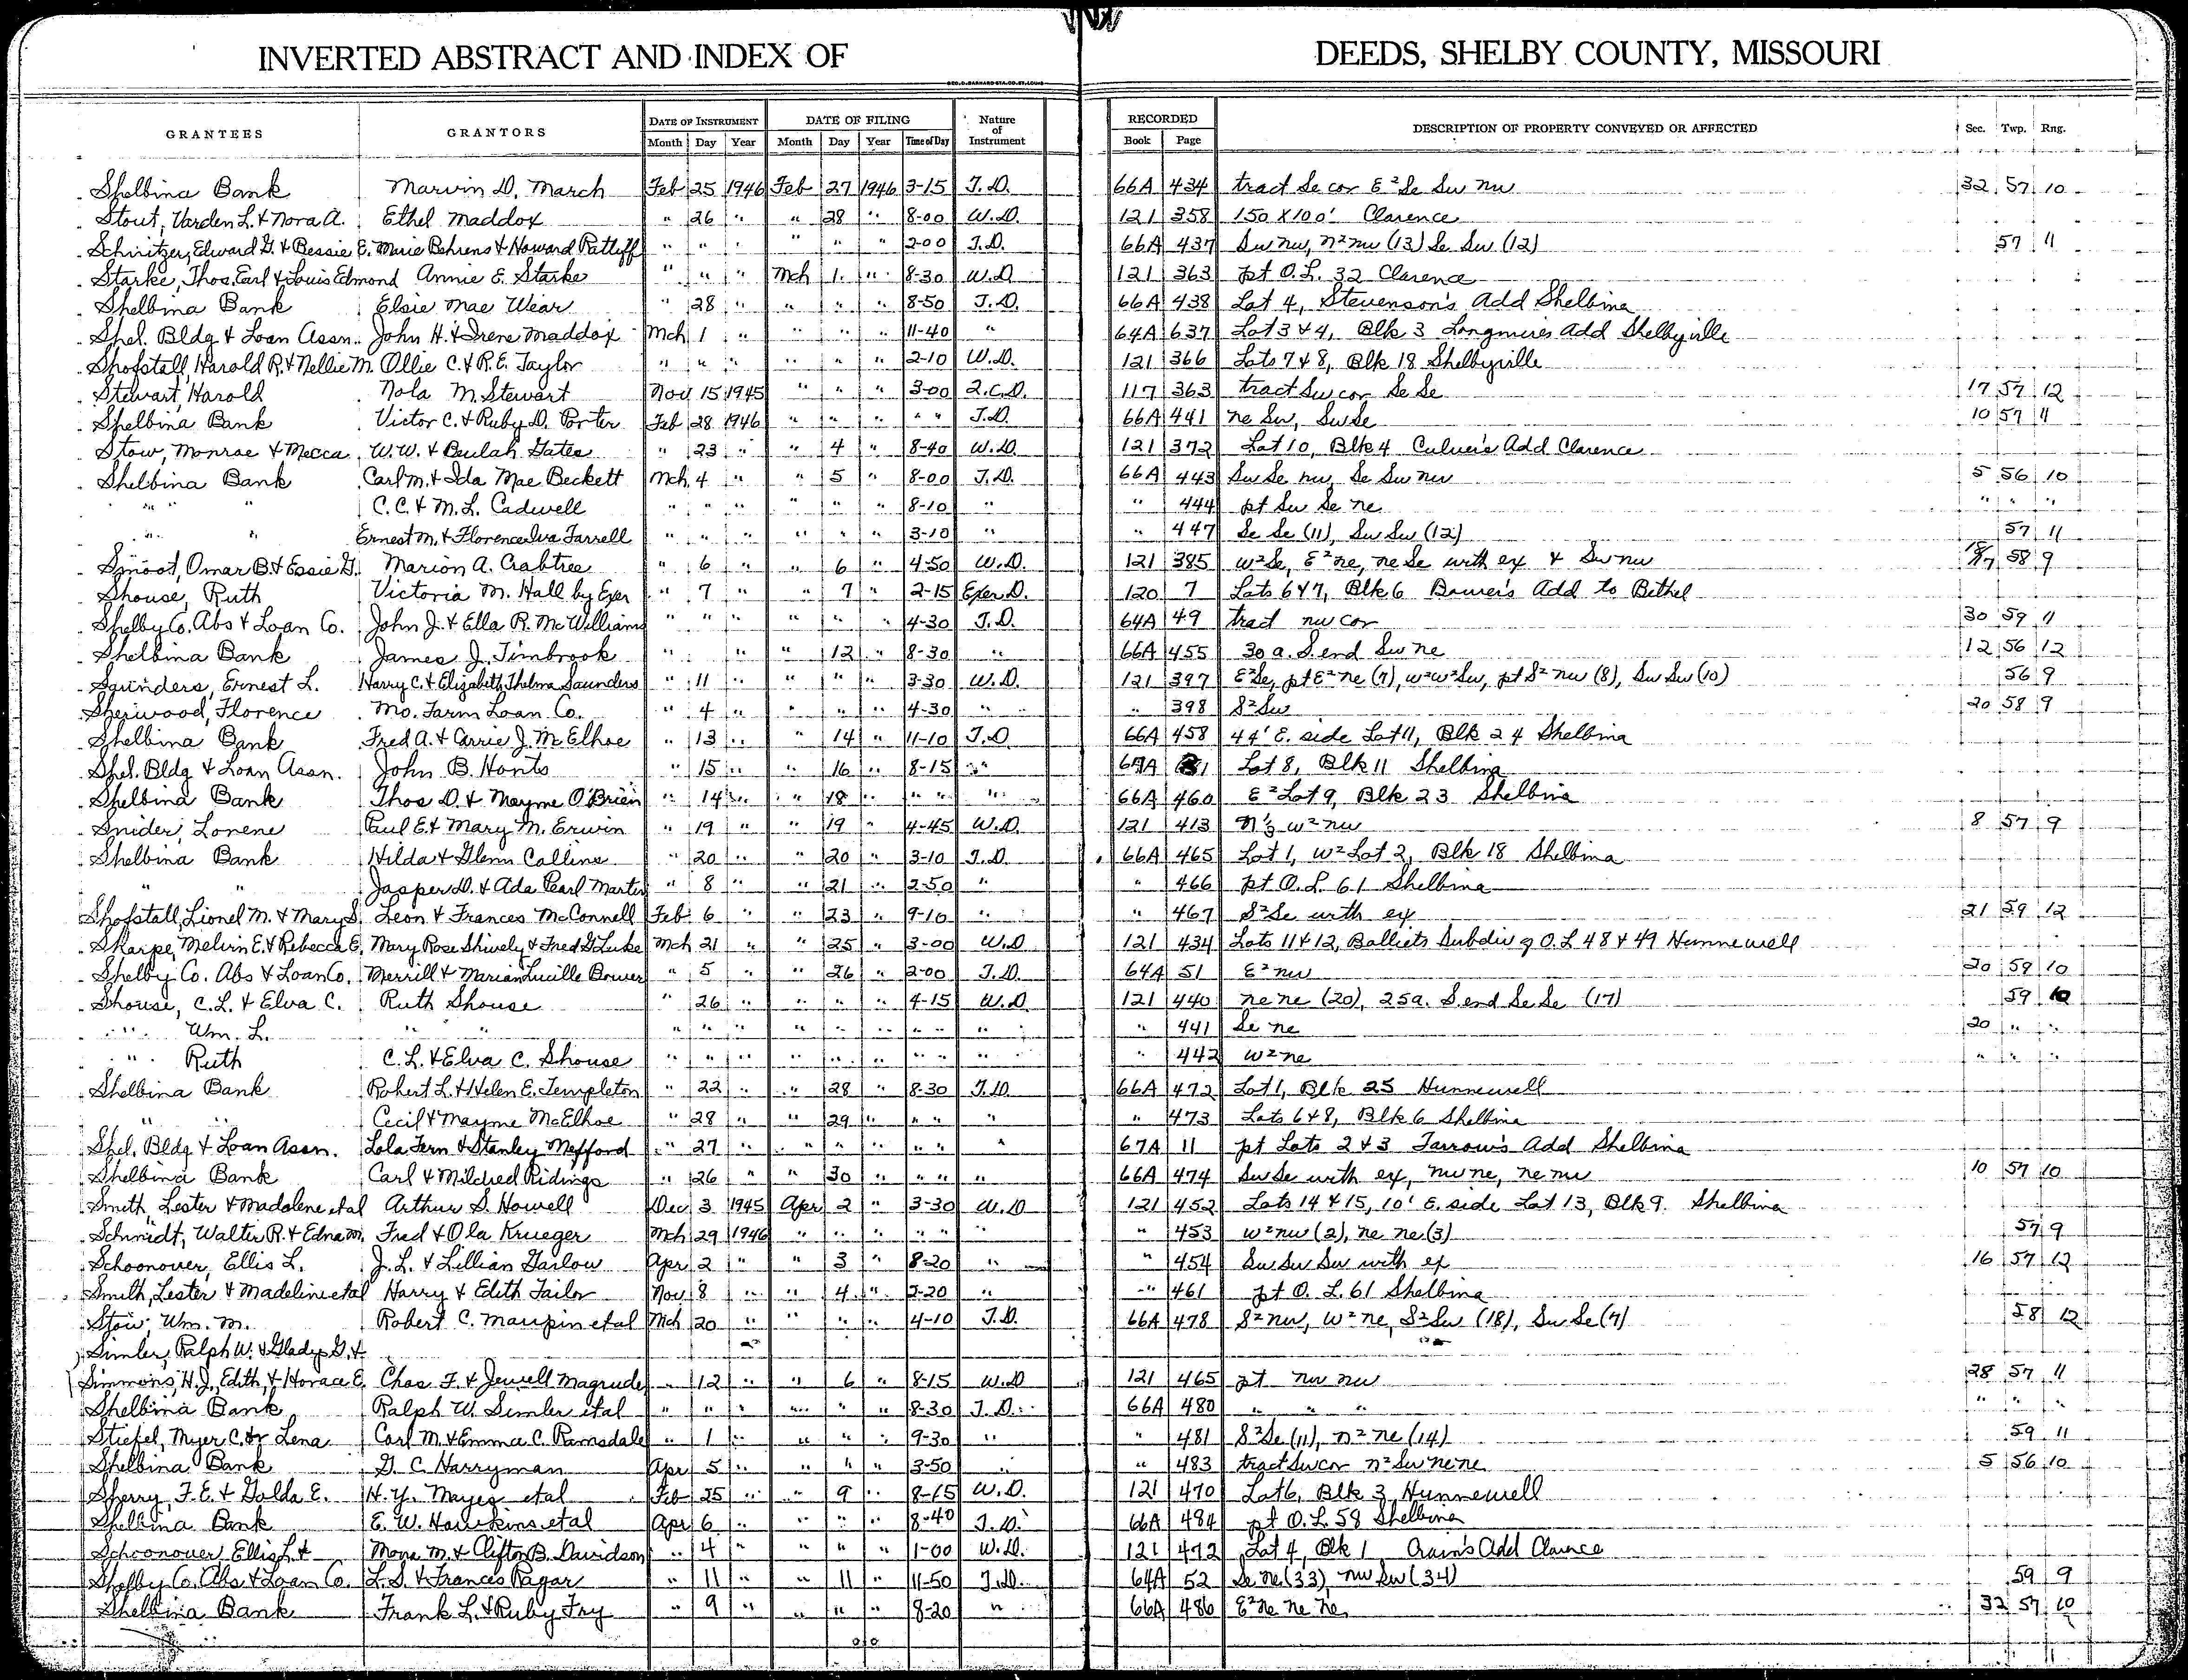 INVERTED ABSTRACT AND INDEX OF DEEDS, SHELBY COUNTY, MISSOURI
GRANTEES GRANTORS DATE OF INSTRUMENT DATE OF FILING Nature of Instrument RECORDED DESCRIPTION OF PROPERTY CONVEYED OR AFFECTED Sec. Twp. Rng.
Month Day Year Month Day Year Time of Day Book Page
Shelbina Bank Marvin D. March Feb 25 1946 Feb 27 1946 3-15 T.D. 66A 434 tract Se cor E² Se Sw nw 32 57 10
Stout, Varden L. & Nora A. Ethel Maddox " 26 " " 28 " 8-00 W.D. 121 358 150 X 100' Clarence
Schiritzer, Edward G. & Bessie E. Marie Behrens & Howard Ratliff " " " " " " 2-00 T.D. 66A 437 Sw nw, n² nw (13) Se Sw (12) 57 11
Starke, Thos. Earl & Louis Edmond Annie E. Starke " " " Mch 1 " 8-30 W.D. 121 363 pt O.L. 32 Clarence
Shelbina Bank Elsie Mae Wear " 28 " " " " 8-50 T.D. 66A 438 Lot 4, Stevenson's Add Shelbina
Shel. Bldg & Loan Assn. John H. & Irene Maddox Mch 1 " " " " 11-40 " 64A 637 Lot 3 & 4, Blk 3 Longmires Add Shelbyville
Shofstall, Harold R. & Nellie M. Ollie C. & R.E. Taylor " " " " " " 2-10 W.D. 121 366 Lots 7 & 8, Blk 18 Shelbyville
Stewart, Harold Nola M. Stewart Nov 15 1945 " " " 3-00 Q.C.D. 117 363 tract Sw cor Se Se 17 57 12
Shelbina Bank Victor C. & Ruby D. Porter Feb 28 1946 " " " " " T.D. 66A 441 ne Sw, Sw Se 10 57 11
Stow, Monroe & Mecca W.W. & Beulah Gates " 23 " " 4 " 8-40 W.D. 121 372 Lot 10, Blk 4 Culver's Add Clarence
Shelbina Bank Carl M. & Ida Mae Beckett Mch 4 " " 5 " 8-00 T.D. 66A 443 Sw Se nw, Se Sw nw 5 56 10
" " C.C. & M.L. Cadwell " " " " " " 8-10 " " 444 pt Sw Se ne " " "
" " Ernest M. & Florence Iva Farrell " " " " " " 3-10 " " 447 Se Se (11), Sw Sw (12) 57 11
Smoot, Omar B. & Essie G. Marion A. Crabtree " 6 " " 6 " 4-50 W.D. 121 385 w² Se, E² ne, ne Se with ex & Sw nw 58 9
Shouse, Ruth Victoria M. Hall by Exer " 7 " " 7 " 2-15 Exer D. 120 7 Lots 6 & 7, Blk 6 Bower's Add to Bethel
Shelby Co. Abs & Loan Co. John J. & Ella R. McWilliams " " " " " " 4-30 T.D. 64A 49 tract nw cor 30 59 11
Shelbina Bank James J. Timbrook " " " 12 " 8-30 " 66A 455 30 a. S. end Sw ne 12 56 12
Saunders, Ernest L. Harry C. & Elizabeth Thelma Saunders " 11 " " " " 3-30 W.D. 121 397 E² Se, pt E² ne (7), w² w² Sw, pt S² nw (8), Sw Sw (10) 56 9
Sherwood, Florence Mo. Farm Loan Co. " 4 " " " " 4-30 " " 398 S² Sw 20 58 9
Shelbina Bank Fred A. & Carrie J. McElhoe " 13 " " 14 " 11-10 T.D. 66A 458 44' E. side Lot 11, Blk 24 Shelbina
Shel. Bldg & Loan Assn. John B. Honts " 15 " " 16 " 8-15 " Lot 8, Blk 11 Shelbina
Shelbina Bank Thos D. & Mayme O'Brien " 14 " " 18 " " " " 66A 460 E² Lot 9, Blk 23 Shelbina
Snider, Lorene Paul E. & Mary M. Erwin " 19 " " 19 " 4-45 W.D. 121 413 w² nw 8 57 9
Shelbina Bank Hilda & Glenn Collins " 20 " " 20 " 3-10 T.D. 66A 465 Lot 1, W² Lot 2, Blk 18 Shelbina
" " Jasper D. & Ada Pearl Martin " 8 " " 21 " 2-50 " " 466 pt O.L. 61 Shelbina
Shofstall, Lionel M. & Mary S. Leon & Frances McConnell Feb 6 " " 23 " 9-10 " " 467 S² Se with ex 21 59 12
Sharpe, Melvin E. & Rebecca E. Mary Rose Shively & Fred G. Luke Mch 21 " " 25 " 3-00 W.D. 121 434 Lots 11 & 12, Balliets Subdiv of O.L 48 & 49 Hunnewell
Shelby Co. Abs & Loan Co. Merrill & Marian Lucille Bower " 5 " " 26 " 2-00 T.D. 64A 51 E² nw 20 59 10
Shouse, C.L. & Elva C. Ruth Shouse " 26 " " " " 4-15 W.D. 121 440 ne ne (20), 25a. S. end Se Se (17) 59 10
" Wm. L. " " " " " " " " " " " 441 Se ne 20 " "
" Ruth C.L. & Elva C. Shouse " " " " " " " " " " 442 w² ne " " "
Shelbina Bank Robert L. & Helen E. Templeton " 22 " " 28 " 8-30 T.D. 66A 472 Lot 1, Blk 25 Hunnewell
" " Cecil & Mayme McElhoe " 28 " " 29 " " " " " 473 Lots 6 & 8, Blk 6 Shelbina
Shel. Bldg & Loan Assn. Lola Fern & Stanley Mefford " 27 " " " " " " " 67A 11 pt Lots 2 & 3 Tarrow's Add Shelbina
Shelbina Bank Carl & Mildred Ridings " 26 " " 30 " " " " 66A 474 Sw Se with ex, nw ne, ne nw 10 57 10
Smith, Lester & Madolene etal Arthur S. Howell Dec 3 1945 Apr 2 " 3-30 W.D 121 452 Lots 14 & 15, 10' E. side Lot 13, Blk 9. Shelbina
Schmidt, Walter R. & Edna M. Fred & Ola Krueger Mch 29 1946 " " " " " " " 453 w² nw (2), ne ne (3) 57 9
Schoonover, Ellis L. J.L. & Lillian Garlow Apr 2 " " 3 " 8-20 " " 454 Sw Sw Sw with ex 16 57 12
Smith, Lester & Madeline etal Harry & Edith Tailor Nov 8 " " 4 " 2-20 " " 461 pt O.L. 61 Shelbina
Stow, Wm. M. Robert C. Maupin etal Mch 20 " " " " 4-10 T.D. 66A 478 S² nw, W² ne, S² Sw (18), Sw Se (7) 58 12
Simler, Ralph W. & Gladys G. &
Simmons, H.J., Edith, & Horace E. Chas F. & Jewell Magruder " 12 " " 6 " 8-15 W.D 121 465 pt nw nw 28 57 11
Shelbina Bank Ralph W. Simler etal " " " " " " 8-30 T.D. 66A 480 " " " " " "
Stiefel, Myer C. & Lena Carl M. & Emma C. Ramsdale " 1 " " " " 9-30 " " 481 S² Se (11), n² ne (14) 59 11
Shelbina Bank G. C. Harryman Apr 5 " " " " 3-50 " " 483 tract Sw cor n² Sw ne ne 5 56 10
Sherry, F.E. & Golda E. H.Y. Mayes etal Feb 25 " " 9 " 8-15 W.D. 121 470 Lot 6, Blk 3 Hunnewell
Shelbina Bank E. W. Hawkins etal Apr 6 " " " " 8-40 T.D. 66A 484 pt O.L. 58 Shelbina
Schoonover Ellis L. & Mona M. & Clifton B. Davidson " 4 " " " " 1-00 W.D. 121 472 Lot 4, Blk 1 Crain's Add Clarence
Shelby Co. Abs & Loan Co. L.S. & Frances Ragar " 11 " " 11 " 11-50 T.D. 64A 52 Se ne (33), nw Sw (34) 59 9
Shelbina Bank Frank L. & Ruby Fry " 9 " " " " 8-20 " 66A 486 E² ne ne ne 32 57 10